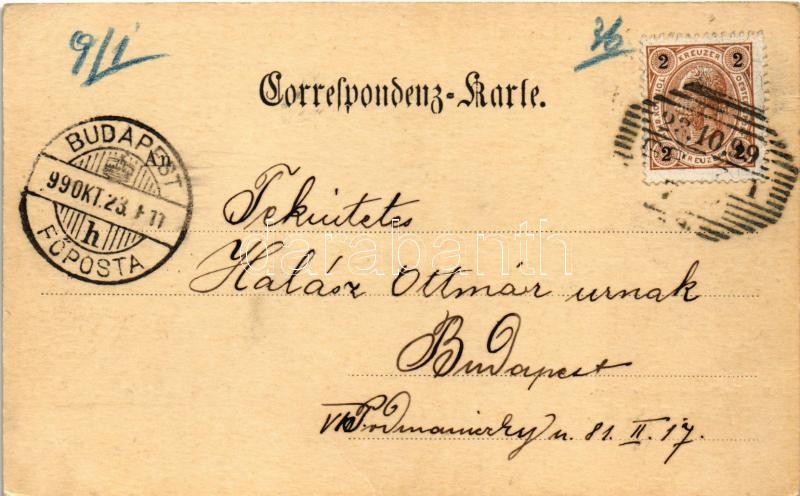 9/I
36
2 KREUZER 2
Correspondenz-Karte.
BUDAPEST
99 OKT. 23.
h
FŐPOSTA
23.10.99
2 KREUZER 2
Tekintetes
Halász Ottmár urnak
darabanth
Budapest
VI Podmaniczky u. 81. II. 17.